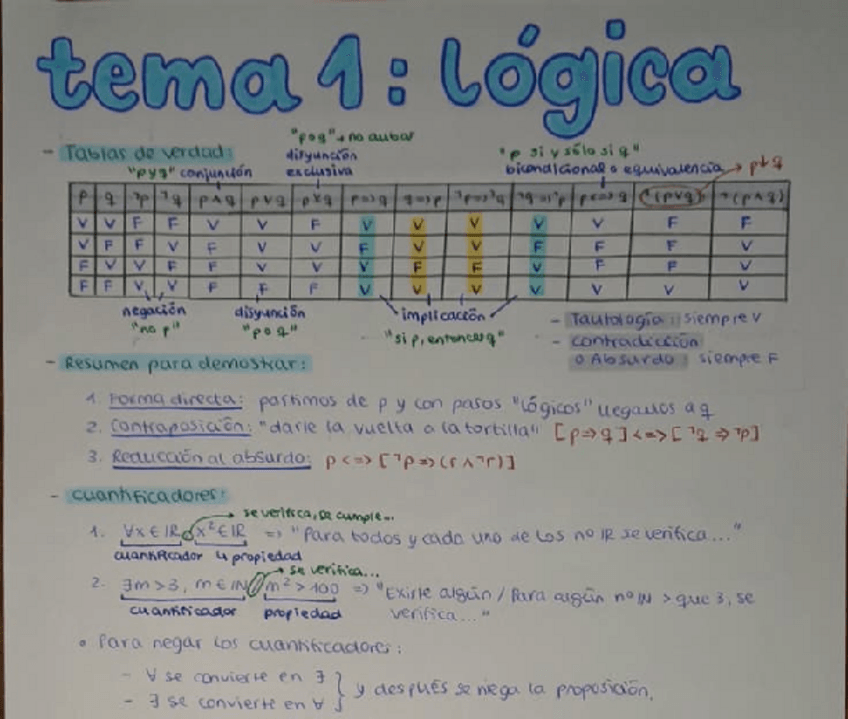 tema 1: lógica
"p o q" + no ambas
- Tablas de verdad: disyunción "p si y sólo si q"
"p y q" conjunción exclusiva bicondicional o equivalencia → p↓q
p q ¬p ¬q p∧q p∨q p⊻q p⇒q q⇒p ¬p⇒¬q ¬q⇒¬p p⇔q ¬(p∨q) ¬(p∧q)
V V F F V V F V V V V V F F
V F F V F V V F V V F F F V
F V V F F V V V F F V F F V
F F V V F F F V V V V V V V
negación disyunción implicación - Tautología: siempre V
"no p" "p o q" "si p, entonces q" - Contradicción
o Absurdo: siempre F
- Resumen para demostrar:
1. Forma directa: partimos de p y con pasos "lógicos" llegamos a q
2. Contraposición: "darle la vuelta a la tortilla" [p⇒q]<=>[¬q⇒¬p]
3. Reducción al absurdo: p<=>[¬p=>(r∧¬r)]
- Cuantificadores:
se verifica, se cumple...
1. ∀x∈IR, x²∈IR => "Para todos y cada uno de los nº IR se verifica..."
cuantificador ↳ propiedad
→ se verifica...
2. ∃m>3, m∈IN / m²>100 => "Existe algún / Para algún nº IN > que 3, se
cuantificador propiedad verifica..."
• Para negar los cuantificadores:
- ∀ se convierte en ∃
} y después se niega la proposición.
- ∃ se convierte en ∀